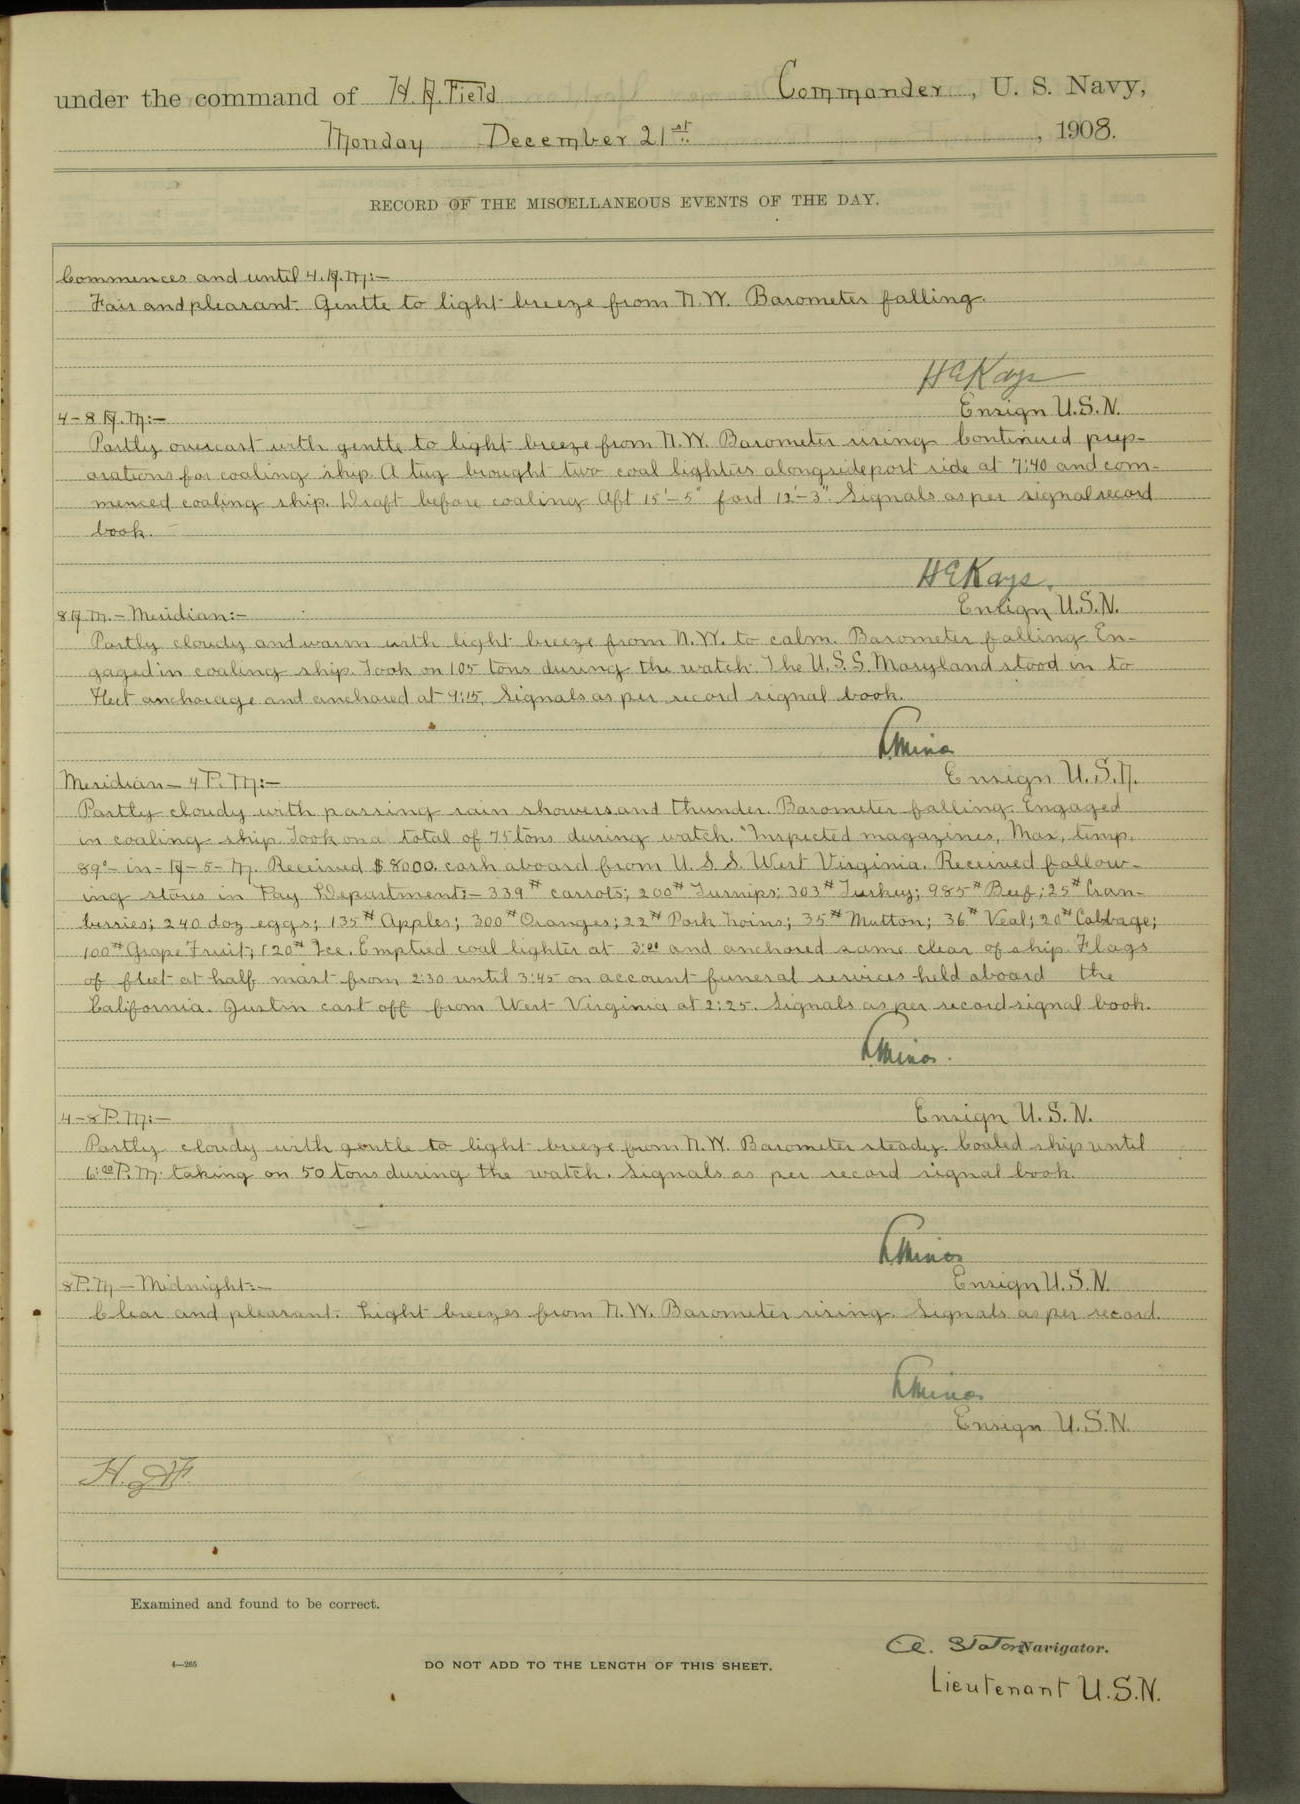 under the command of H. A. Field Commander, U. S. Navy,
Monday December 21st, 1908.
RECORD OF THE MISCELLANEOUS EVENTS OF THE DAY.
Commences and until 4. A. M:-
Fair and pleasant. Gentle to light breeze from N.W. Barometer falling.
H E Kays
Ensign U.S.N.
4-8 A.M:-
Partly overcast with gentle to light breeze from N.W. Barometer rising. Continued prep-
arations for coaling ship. A tug brought two coal lighters alongside port side at 7:40 and com-
menced coaling ship. Draft before coaling Aft 15'-5" for'd 12'-3". Signals as per signal record
book.
H E Kays.
Ensign U.S.N.
8 A.M.- Meridian:-
Partly cloudy and warm with light breeze from N.W. to calm. Barometer falling. En-
gaged in coaling ship. Took on 105 tons during the watch. The U.S.S. Maryland stood in to
fleet anchorage and anchored at 9:15. Signals as per record signal book.
Ensign U.S.N.
Meridian- 4 P.M:-
Partly cloudy with passing rain showers and thunder. Barometer falling. Engaged
in coaling ship. Took on a total of 75 tons during watch. Inspected magazines, Max, temp.
89°-in-A-5-M. Received $8000. cash aboard from U.S.S. West Virginia. Received follow-
ing stores in Pay Department:- 339# carrots; 200# Turnips; 303# Turkey; 985# Beef; 25# Cran-
berries; 240 doz eggs; 135# Apples; 300# Oranges; 22# Pork Loins; 35# Mutton; 36# Veal; 20# Cabbage;
100# Grape Fruit; 120# Ice. Emptied coal lighter at 3:00 and anchored same clear of ship. Flags
of fleet at half mast from 2:30 until 3:45 on account funeral services held aboard the
California. Justin cast off from West Virginia at 2:25. Signals as per record signal book.
Ensign U.S.N.
4-8 P.M:-
Partly cloudy with gentle to light breeze from N.W. Barometer steady. Coaled ship until
6:00 P.M. taking on 50 tons during the watch. Signals as per record signal book.
Ensign U.S.N.
8 P.M - Midnight:-
Clear and pleasant. Light breezes from N.W. Barometer rising. Signals as per record.
Ensign U.S.N.
H. A. F.
Examined and found to be correct.
Navigator.
4-265
DO NOT ADD TO THE LENGTH OF THIS SHEET.
Lieutenant U.S.N.